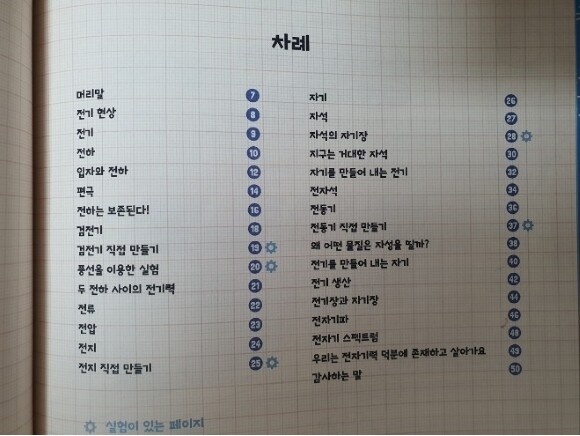 차례
머리말 7
전기 현상 8
전기 9
전하 10
입자와 전하 12
편극 14
전하는 보존된다! 16
검전기 18
검전기 직접 만들기 19
풍선을 이용한 실험 20
두 전하 사이의 전기력 21
전류 22
전압 23
전지 24
전지 직접 만들기 25
실험이 있는 페이지
자기 26
자석 27
자석의 자기장 28
지구는 거대한 자석 30
자기를 만들어 내는 전기 32
전자석 34
전동기 36
전동기 직접 만들기 37
왜 어떤 물질은 자성을 띨까? 38
전기를 만들어 내는 자기 40
전기 생산 42
전기장과 자기장 44
전자기파 46
전자기 스펙트럼 48
우리는 전자기력 덕분에 존재하고 살아가요 49
감사하는 말 50